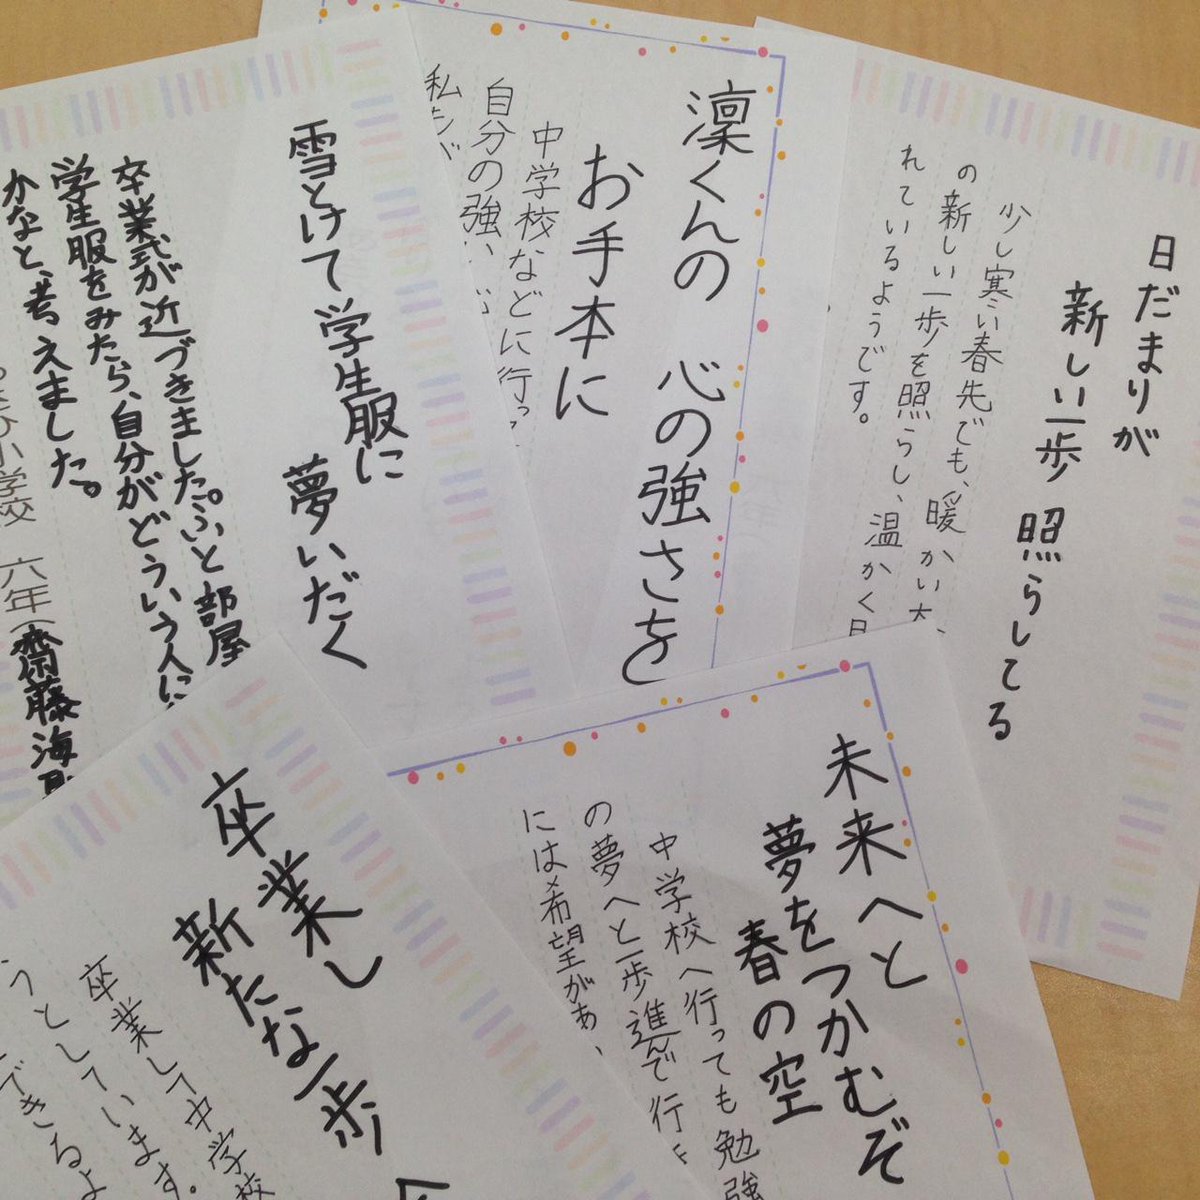 日だまりが
新しい一歩 照らしてる
少し寒い春先でも、暖かい太
の新しい一歩を照らし、温かく見
れているようです。
凜くんの 心の強さを
お手本に
中学校などに行っ
自分の強い
私も
雪とけて 学生服に
夢いだく
卒業式が近づきました。ふと部屋
学生服をみたら、自分がどういう人に
かなと、考えました。
小学校 六年(齋藤海
未来へと
夢をつかむぞ
春の空
中学校へ行っても勉強
の夢へと一歩進んで行
には希望があ
卒業し
新たな一歩
卒業して中学校
うとしています。
できるよ